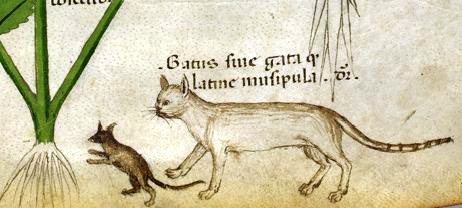 .Gatus siue gata q
latine musipula . dr.